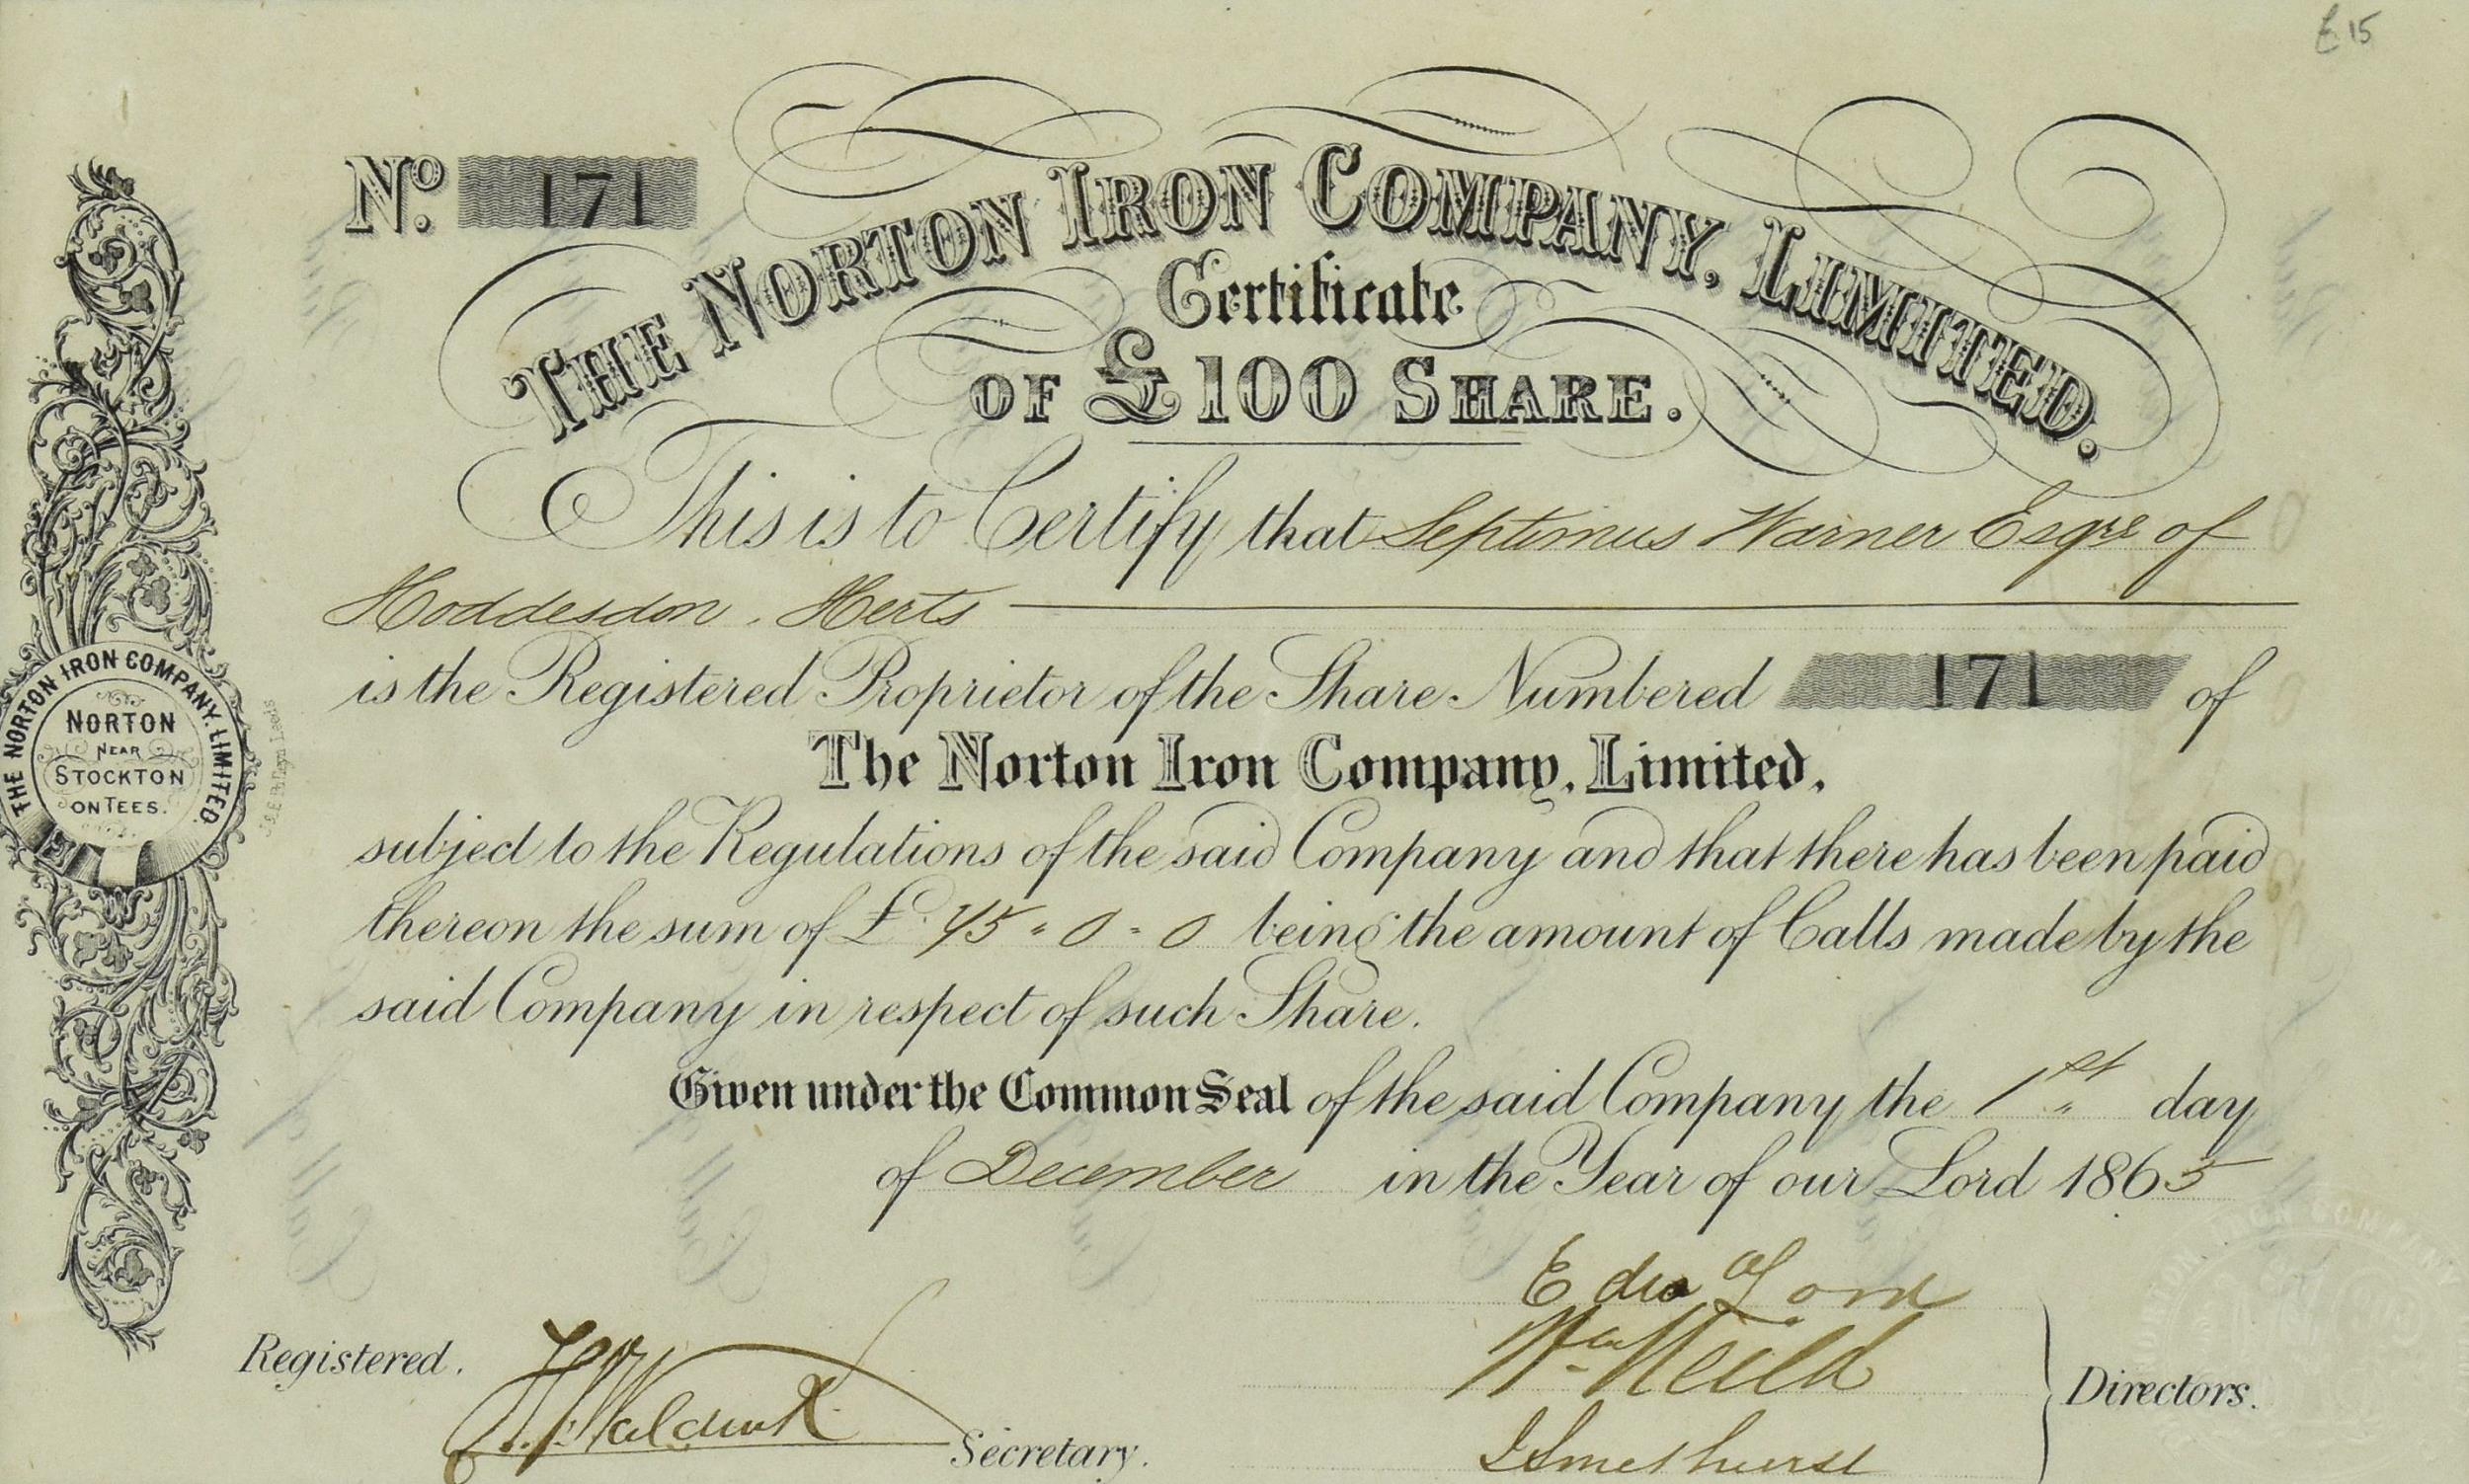 £15
No. 171
THE NORTON IRON COMPANY, LIMITED.
Certificate
OF £100 SHARE.
This is to Certify that Septimus Warner Esqre of
Hoddesdon, Herts
is the Registered Proprietor of the Share Numbered 171 of
The Norton Iron Company, Limited,
subject to the Regulations of the said Company and that there has been paid
thereon the sum of £ 45 " 0 " 0 being the amount of Calls made by the
said Company in respect of such Share.
Given under the Common Seal of the said Company the 1st day
of December in the Year of our Lord 1865
Edwd Lord
Wm Neild
J Smethurst
Directors.
Registered.
Secretary.
THE NORTON IRON COMPANY, LIMITED.
NORTON
NEAR
STOCKTON
ON TEES.